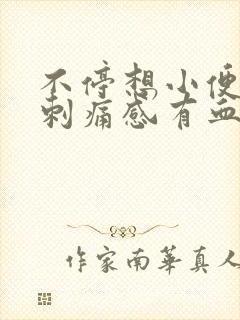 不停想小便
刺痛感有血
作家南華真人